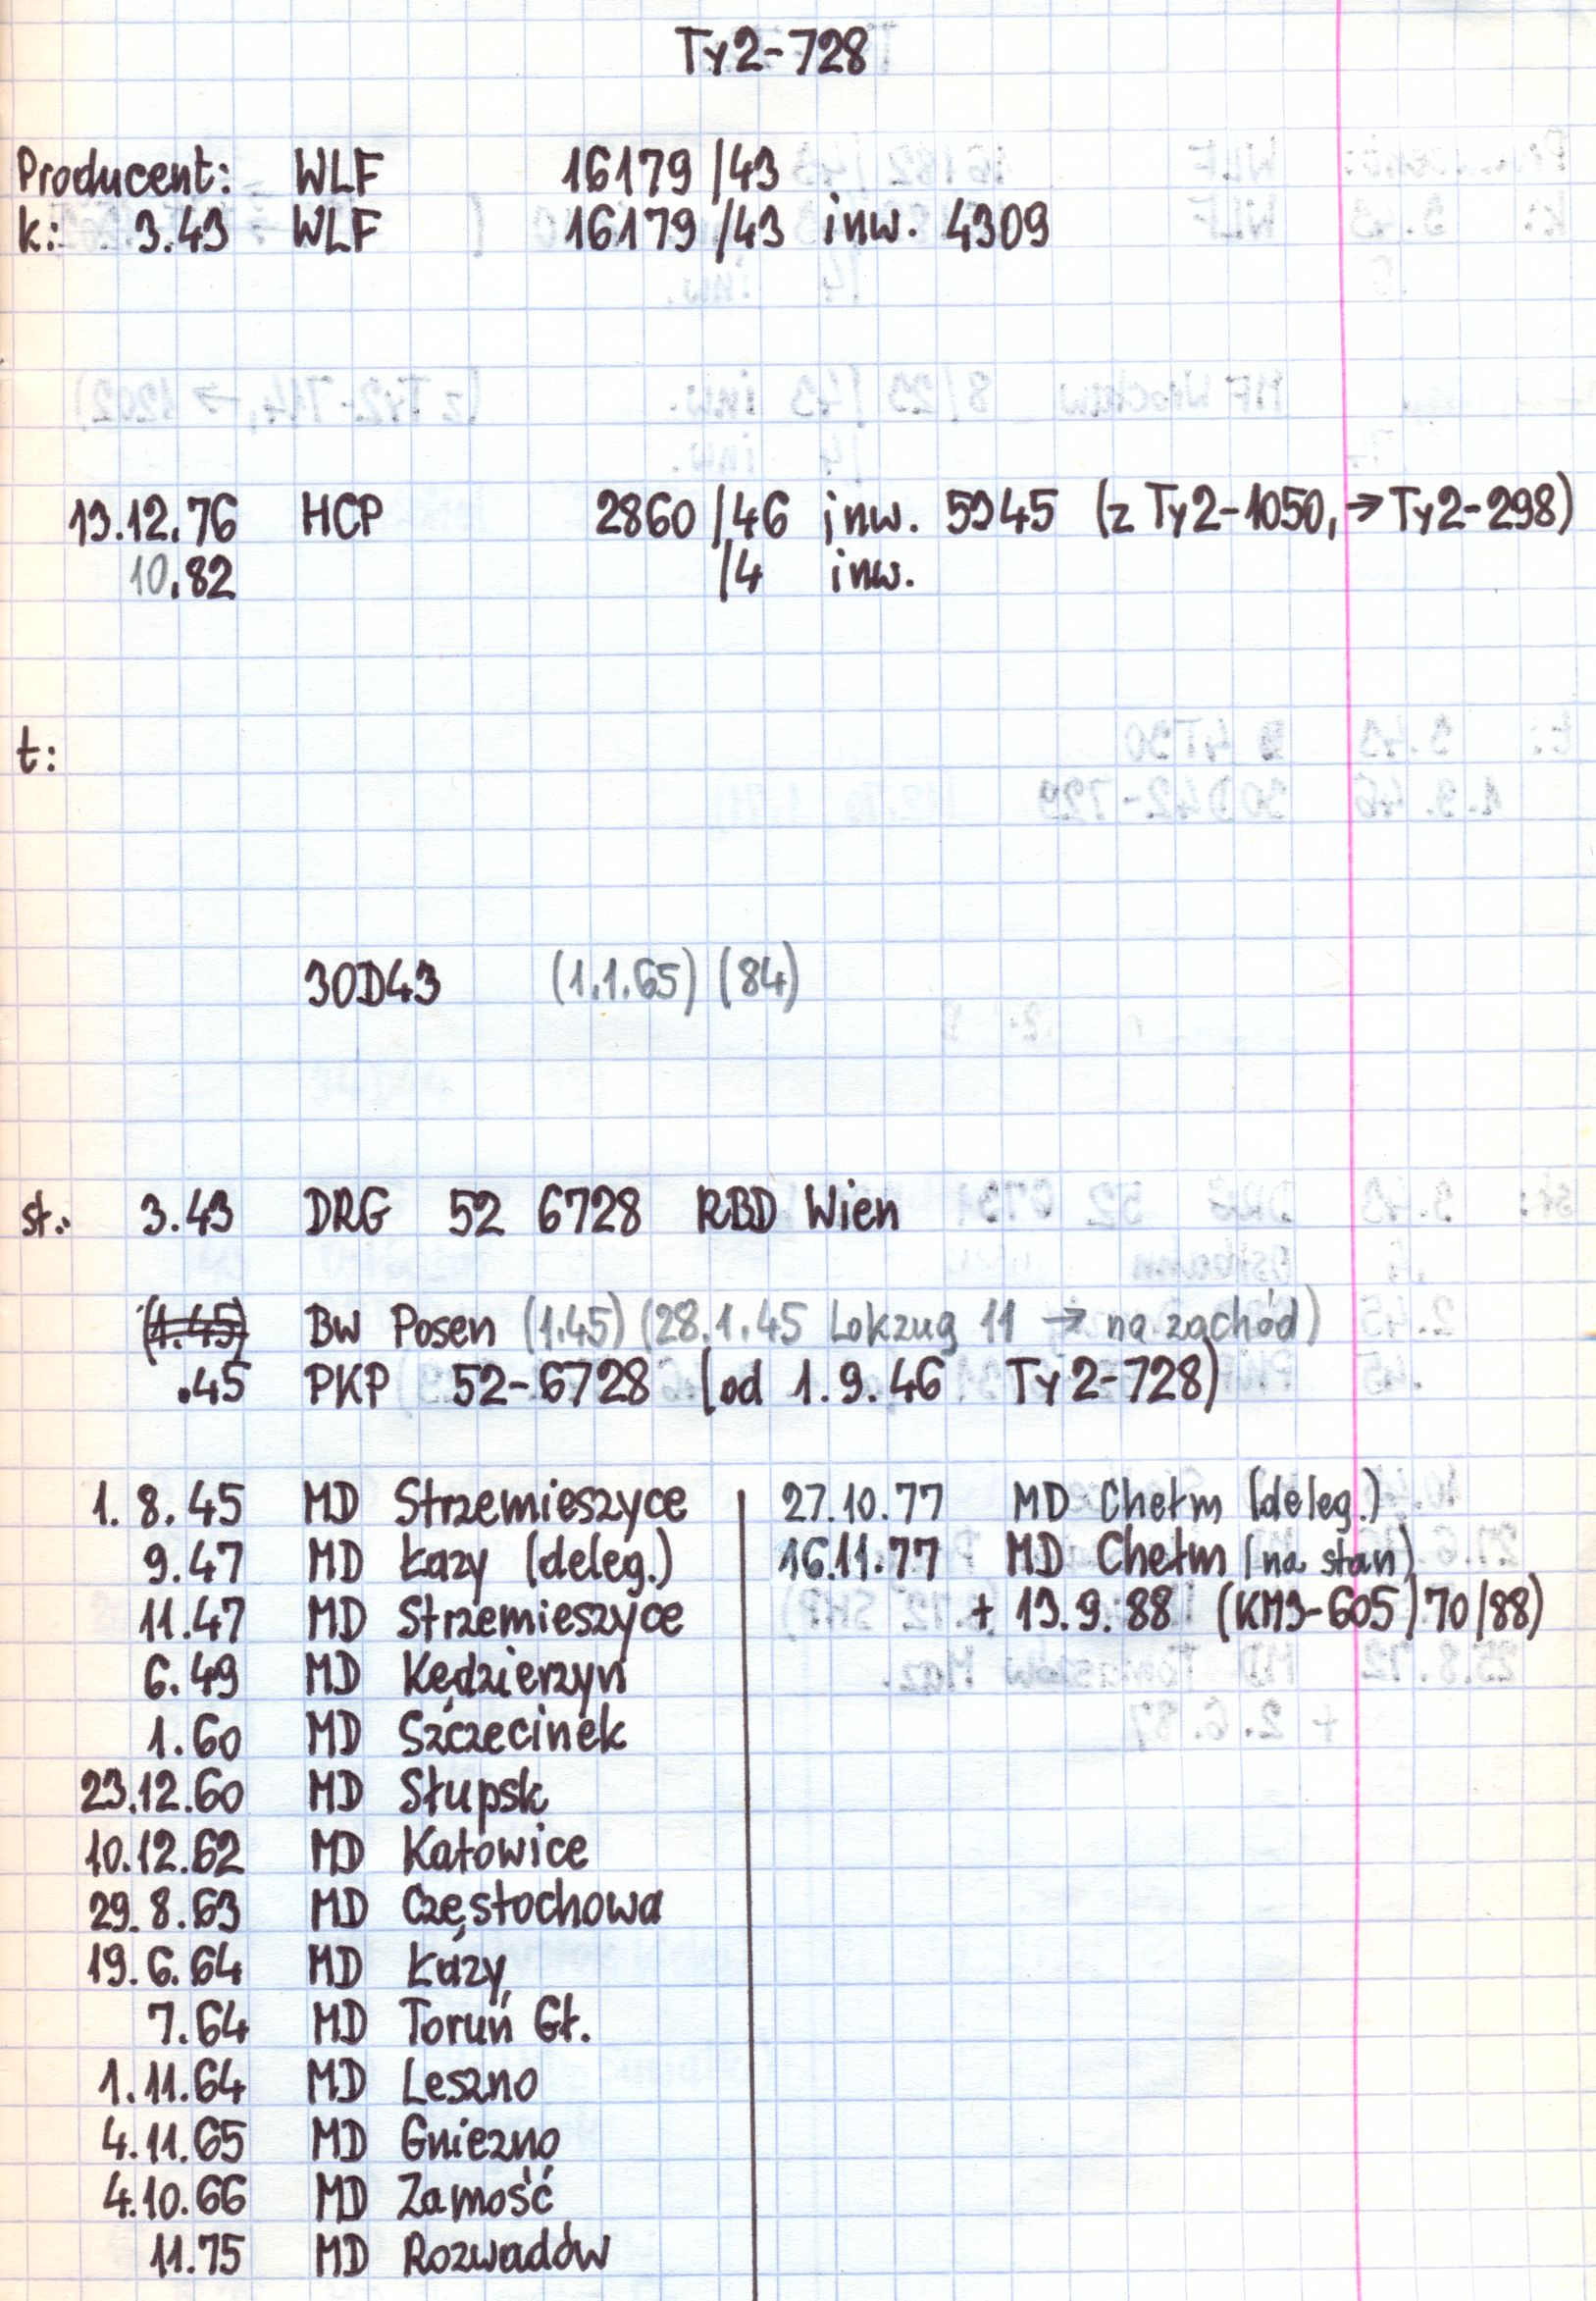 Ty2-728
Producent: WLF 16179/43
k: 3.43 WLF 16179/43 inw. 4309
13.12.76 HCP 2860/46 inw. 5345 (z Ty2-1050, → Ty2-298)
10.82 /4 inw.
t:
30D43 (1.1.65) (84)
st.: 3.43 DRG 52 6728 RBD Wien
(1.45) Bw Posen (1.45) (28.1.45 Lokzug 11 → na zachód)
.45 PKP 52-6728 (od 1.9.46 Ty2-728)
1.8.45 MD Strzemieszyce
9.47 MD Łazy (deleg.)
11.47 MD Strzemieszyce
6.49 MD Kędzierzyn
1.60 MD Szczecinek
23.12.60 MD Słupsk
10.12.62 MD Katowice
29.8.63 MD Częstochowa
19.6.64 MD Łazy
7.64 MD Toruń Gł.
1.11.64 MD Leszno
4.11.65 MD Gniezno
4.10.66 MD Zamość
11.75 MD Rozwadów
27.10.77 MD Chełm (deleg.)
16.11.77 MD Chełm (na stan)
+ 13.9.88 (KM3-605)70/88)